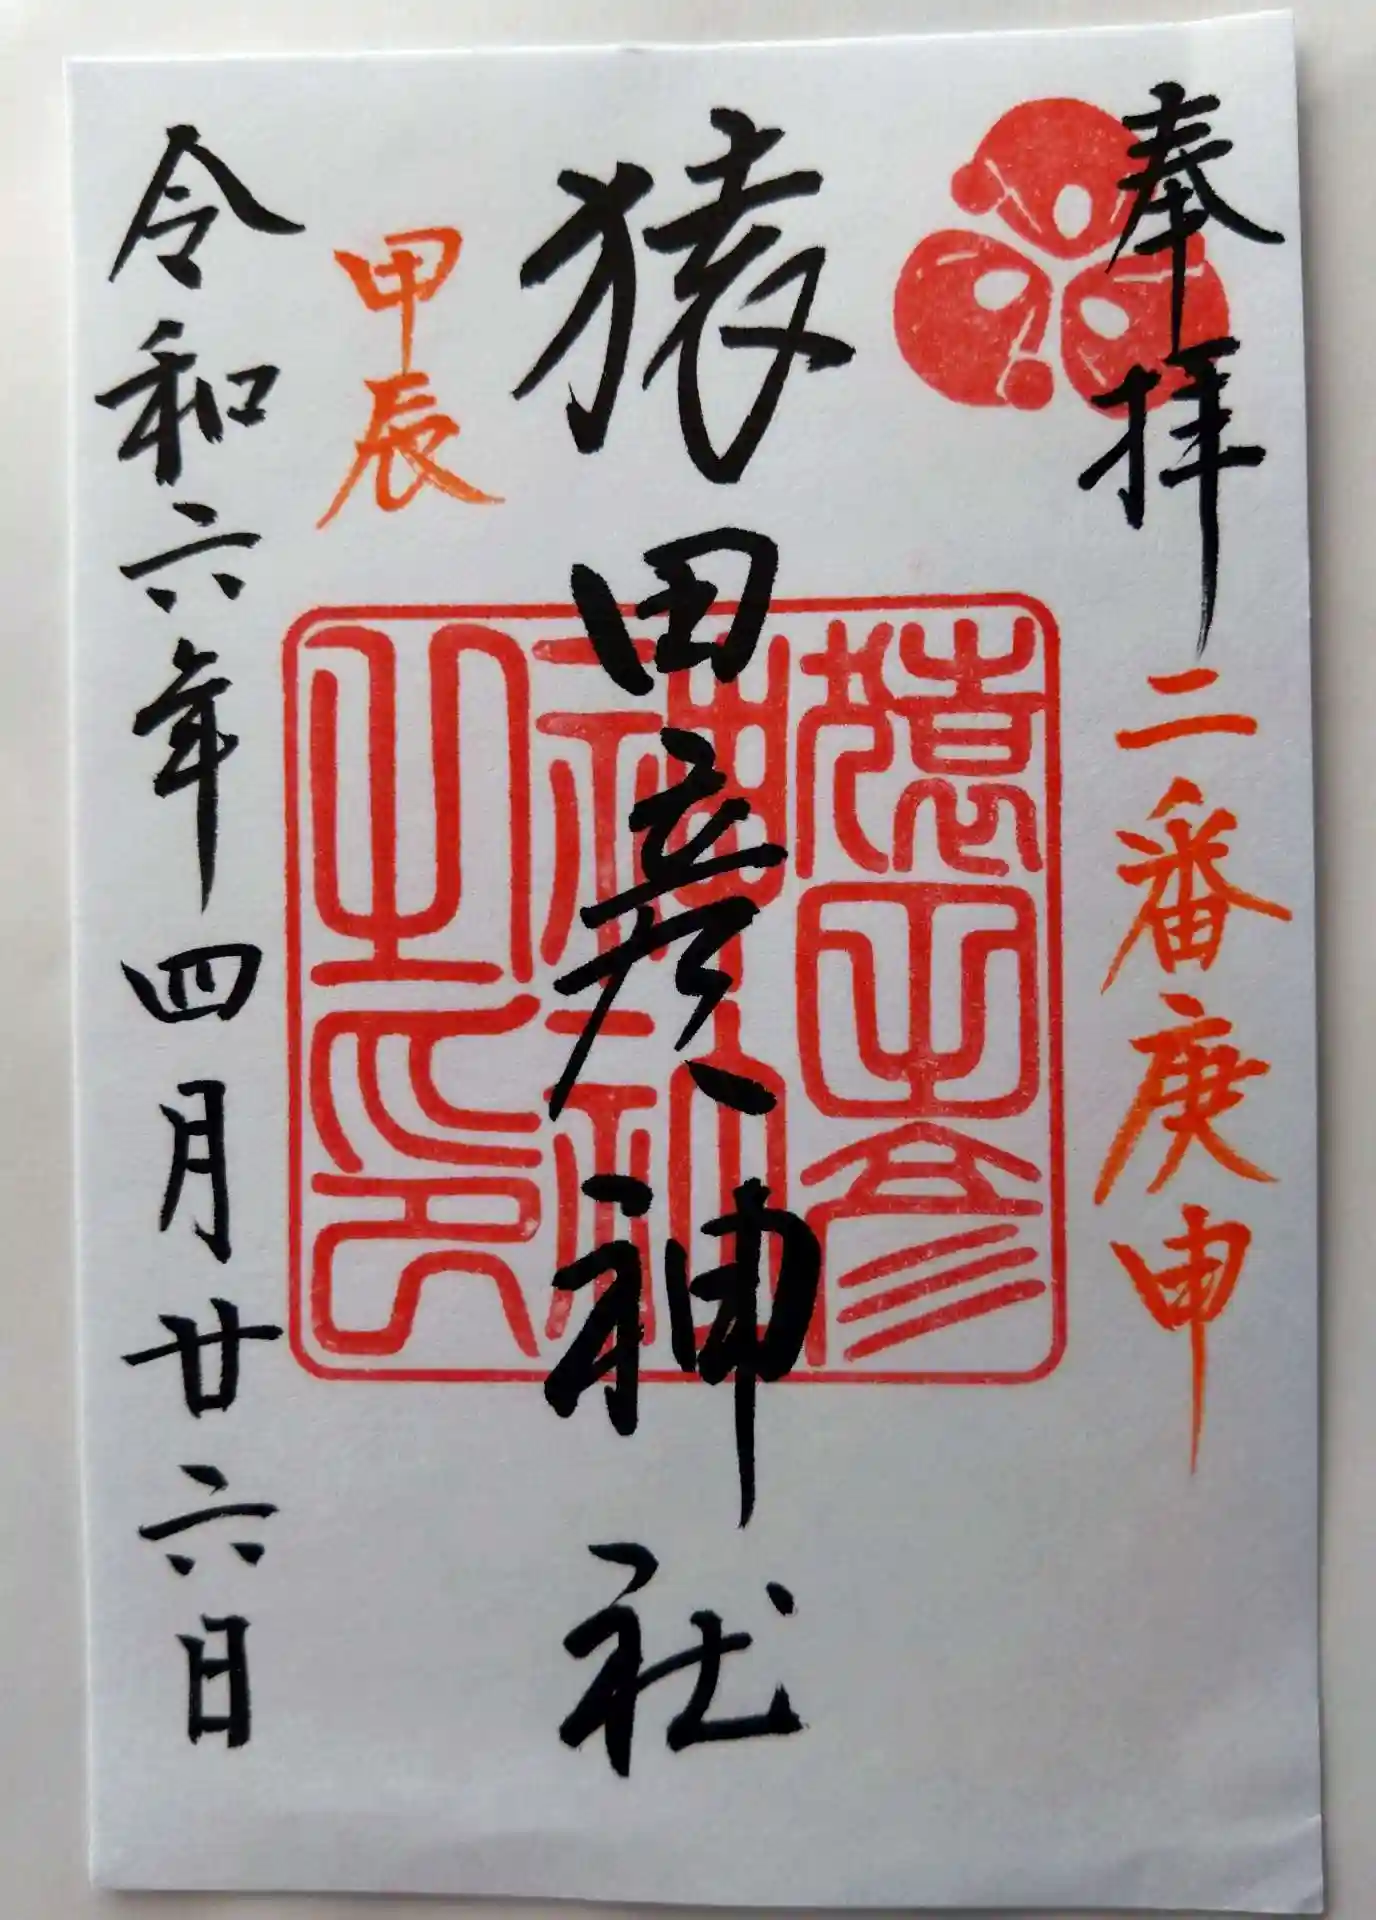 奉拝
二番庚申
猿田彦神社
猿田彦
神社
之印
甲辰
令和六年四月廿六日